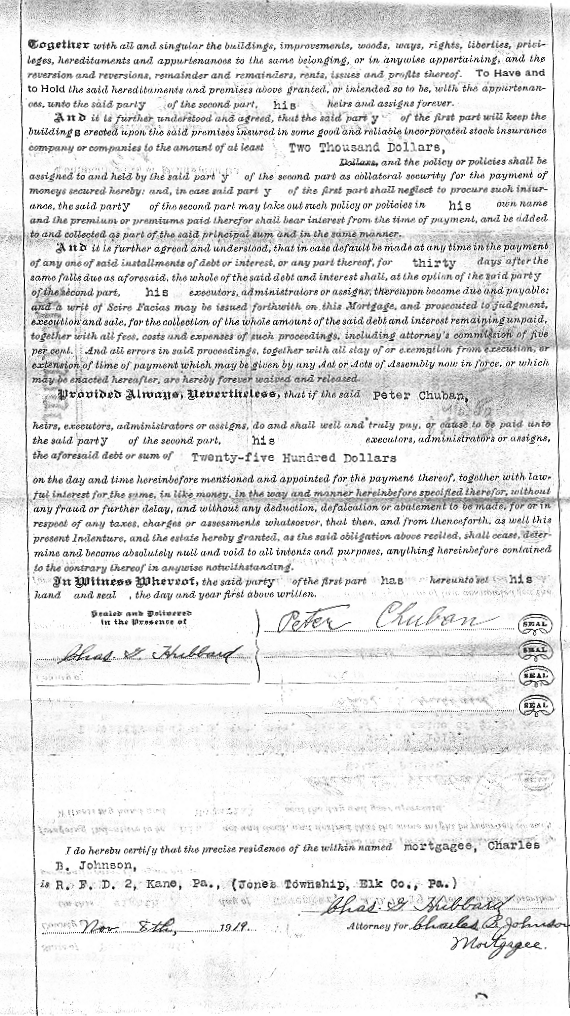 Together with all and singular the buildings, improvements, woods, ways, rights, liberties, privi-
leges, hereditaments and appurtenances to the same belonging, or in anywise appertaining, and the
reversion and reversions, remainder and remainders, rents, issues and profits thereof. To Have and
to Hold the said hereditaments and premises above granted, or intended so to be, with the appurtenan-
ces, unto the said party of the second part, his heirs and assigns forever.
And it is further understood and agreed, that the said party of the first part will keep the
buildings erected upon the said premises insured in some good and reliable incorporated stock insurance
company or companies to the amount of at least Two Thousand Dollars,
Dollars, and the policy or policies shall be
assigned to and held by the said party of the second part as collateral security for the payment of
moneys secured hereby: and, in case said party of the first part shall neglect to procure such insur-
ance, the said party of the second part may take out such policy or policies in his own name
and the premium or premiums paid therefor shall bear interest from the time of payment, and be added
to and collected as part of the said principal sum and in the same manner.
And it is further agreed and understood, that in case default be made at any time in the payment
of any one of said installments of debt or interest, or any part thereof, for thirty days after the
same falls due as aforesaid, the whole of the said debt and interest shall, at the option of the said party
of the second part, his executors, administrators or assigns, thereupon become due and payable:
and a writ of Scire Facias may be issued forthwith on this Mortgage, and prosecuted to judgment,
execution and sale, for the collection of the whole amount of the said debt and interest remaining unpaid,
together with all fees, costs and expenses of such proceedings, including attorney's commission of five
per cent. And all errors in said proceedings, together with all stay of or exemption from execution, or
extension of time of payment which may be given by any Act or Acts of Assembly now in force, or which
may be enacted hereafter, are hereby forever waived and released.
Provided Always, Nevertheless, that if the said Peter Chuban,
heirs, executors, administrators or assigns, do and shall well and truly pay, or cause to be paid unto
the said party of the second part, his executors, administrators or assigns,
the aforesaid debt or sum of Twenty-five Hundred Dollars
on the day and time hereinbefore mentioned and appointed for the payment thereof, together with law-
ful interest for the same, in like money, in the way and manner hereinbefore specified therefor, without
any fraud or further delay, and without any deduction, defalcation or abatement to be made, for or in
respect of any taxes, charges or assessments whatsoever, that then, and from thenceforth, as well this
present Indenture, and the estate hereby granted, as the said obligation above recited, shall cease, deter-
mine and become absolutely null and void to all intents and purposes, anything hereinbefore contained
to the contrary thereof in anywise notwithstanding.
In Witness Whereof, the said party of the first part has hereunto set his
hand and seal , the day and year first above written.
Sealed and Delivered
in the Presence of
Peter Chuban SEAL
Chas. G. Hubbard SEAL
SEAL
SEAL
I do hereby certify that the precise residence of the within named mortgagee, Charles
B. Johnson,
is R. F. D. 2, Kane, Pa., (Jones Township, Elk Co., Pa.)
Chas. G. Hubbard
Nov 8th, 1919. Attorney for Charles B. Johnson
Mortgagee.